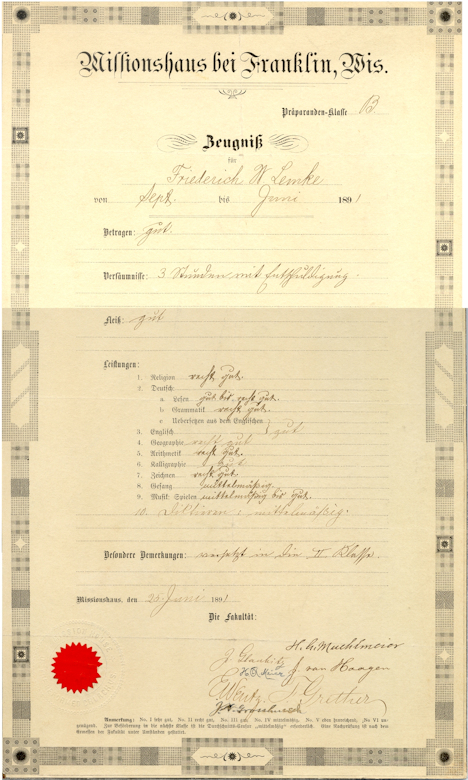 Missionshaus bei Franklin, Wis.
Präparanden-Klasse B
Zeugniß
für
Friederich W Lemke
von Sept. bis Juni 1891
Betragen: gut.
Versäumnisse: 3 Stunden mit Entschuldigung.
Fleiß: gut
Leistungen:
1. Religion recht gut.
2. Deutsch
a. Lesen gut bis recht gut.
b. Grammatik recht gut.
c. Uebersetzen aus dem Englischen
3. Englisch } gut
4. Geographie recht gut
5. Arithmetik recht gut.
6. Kalligraphie gut
7. Zeichnen recht gut
8. Gesang mittelmäßig.
9. Musik: Spielen mittelmäßig bis gut.
10. mittelmäßig.
Besondere Bemerkungen: versetzt in die II Klasse.
Missionshaus, den 20 Juni 1891
Die Fakultät:
H. A. Muehlmeier
J. van Haagen
F. Grether
Anmerkung: No. I sehr gut, No. II recht gut, No. III gut, No. IV mittelmäßig, No. V